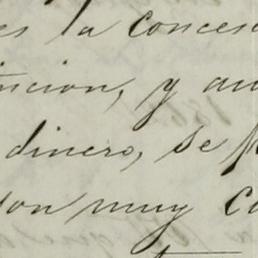 es la conces
ncion, y au
dinero, se p
son muy c